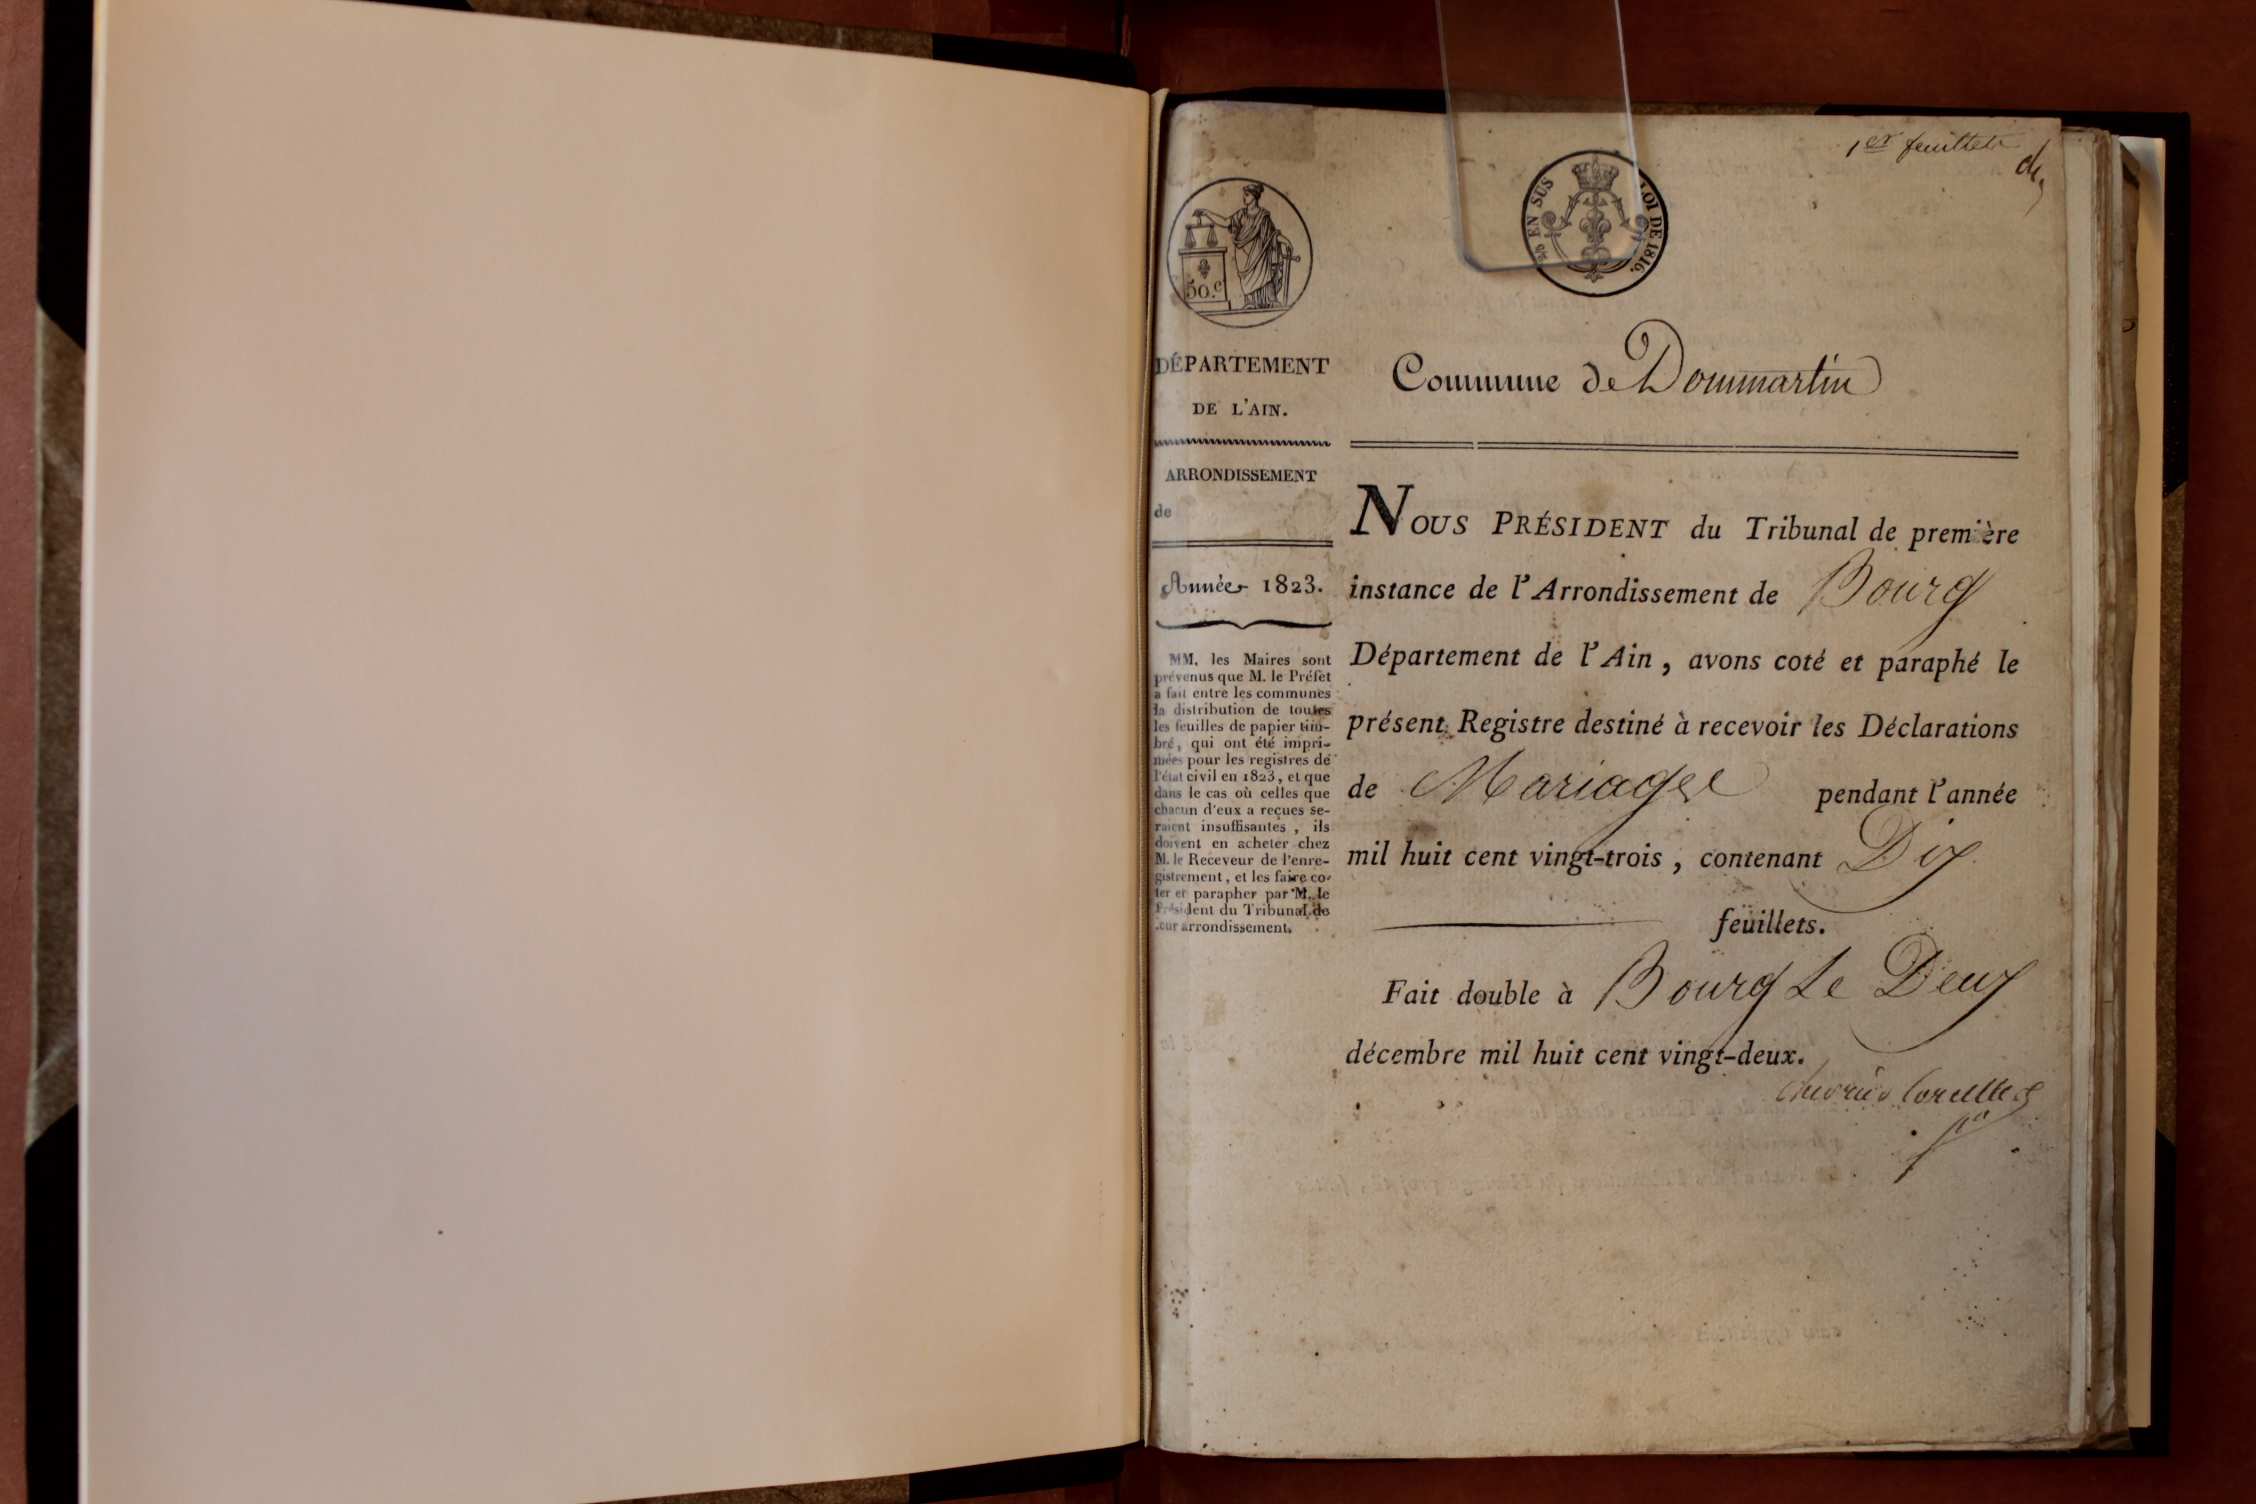 1er feuillet
50.c
EN SUS
LOI DE 1816.
DÉPARTEMENT
DE L'AIN.
ARRONDISSEMENT
de
Année 1823.
MM. les Maires sont
prévenus que M. le Préfet
a fait entre les communes
la distribution de toutes
les feuilles de papier tim-
bré, qui ont été impri-
mées pour les registres de
l'état civil en 1823, et que
dans le cas où celles que
chacun d'eux a reçues se-
raient insuffisantes, ils
doivent en acheter chez
M. le Receveur de l'enre-
gistrement, et les faire co-
ter et parapher par M. le
Président du Tribunal de
leur arrondissement.
Commune de Dommartin
NOUS PRÉSIDENT du Tribunal de première
instance de l'Arrondissement de Bourg
Département de l'Ain, avons coté et paraphé le
présent Registre destiné à recevoir les Déclarations
de Mariages pendant l'année
mil huit cent vingt-trois, contenant Dix
feuillets.
Fait double à Bourg Le Deux
décembre mil huit cent vingt-deux.